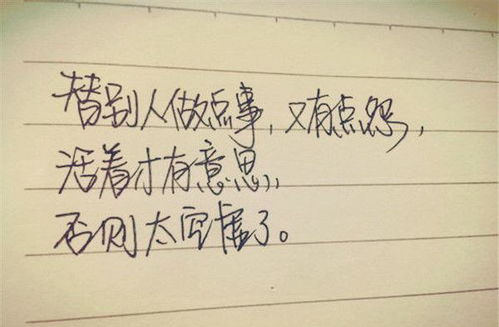 替别人做点事，又有点怨，
活着才有意思，
否则太空虚了。